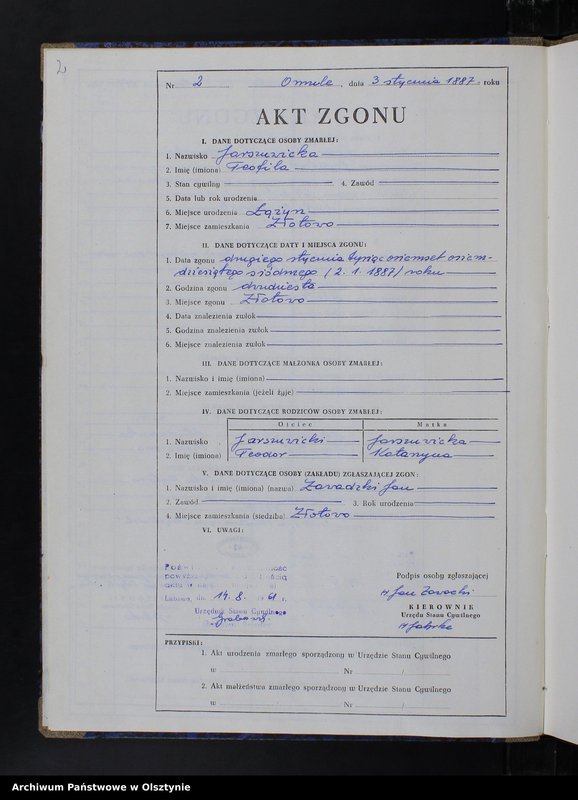 2
Nr 2 Omule, dnia 3 stycznia 1887 roku
AKT ZGONU
I. DANE DOTYCZĄCE OSOBY ZMARŁEJ:
1. Nazwisko Jarszwicka
2. Imię (imiona) Teofila
3. Stan cywilny 4. Zawód
5. Data lub rok urodzenia
6. Miejsce urodzenia Łążyn
7. Miejsce zamieszkania Złotowo
II. DANE DOTYCZĄCE DATY I MIEJSCA ZGONU:
1. Data zgonu drugiego stycznia tysiąc osiemset osiem-
dziesiątego siódmego /2.1.1887/ roku
2. Godzina zgonu dwudziesta
3. Miejsce zgonu Złotowo
4. Data znalezienia zwłok
5. Godzina znalezienia zwłok
6. Miejsce znalezienia zwłok
III. DANE DOTYCZĄCE MAŁŻONKA OSOBY ZMARŁEJ:
1. Nazwisko i imię (imiona)
2. Miejsce zamieszkania (jeżeli żyje)
IV. DANE DOTYCZĄCE RODZICÓW OSOBY ZMARŁEJ:
Ojciec Matka
1. Nazwisko Jarszwicki Jarszwicka
2. Imię (imiona) Teodor Katarzyna
V. DANE DOTYCZĄCE OSOBY (ZAKŁADU) ZGŁASZAJĄCEJ ZGON:
1. Nazwisko i imię (imiona) (nazwa) Zawadzki Jan
2. Zawód 3. Rok urodzenia
4. Miejsce zamieszkania (siedziba) Złotowo
VI. UWAGI:
Podpis osoby zgłaszającej
14.8. 1961 r.
Urzędnik Stanu Cywilnego
KIEROWNIK
Urzędu Stanu Cywilnego
PRZYPISKI:
1. Akt urodzenia zmarłego sporządzony w Urzędzie Stanu Cywilnego
w Nr /
2. Akt małżeństwa zmarłego sporządzony w Urzędzie Stanu Cywilnego
w Nr /
Archiwum Państwowe w Olsztynie